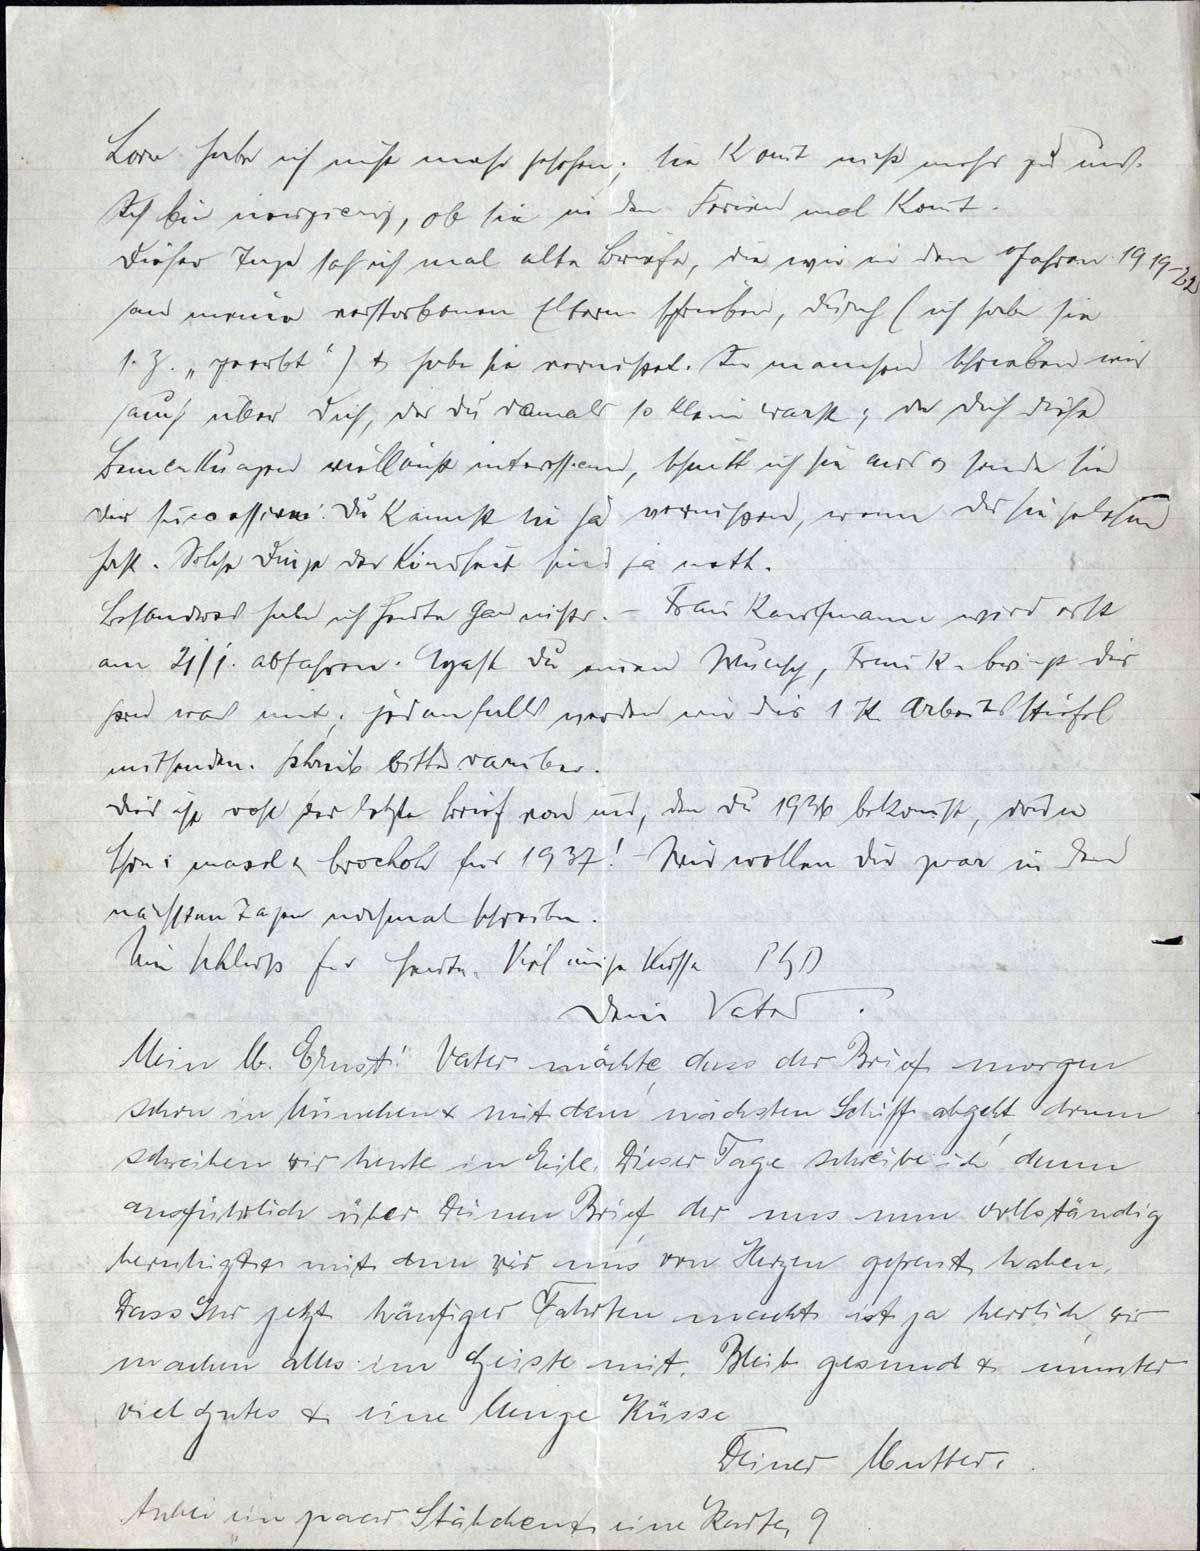 Lore habe ich nicht mehr gesehen; sie kommt nicht mehr zu uns.
Ich bin neugierig, ob sie in den Ferien mal kommt.
Dieser Tage sah ich mal alte Briefe, die wir in den Jahren 1919-22
an meine verstorbenen Eltern schrieben, durch (ich habe sie
s. Z. „geerbt“) & habe sie vernichtet. In manchen schrieben wir
auch über Dich, der Du damals so klein warst; da Dich diese
Bemerkungen vielleicht interessieren, schnitt ich sie aus & sende sie
Dir successive. Du kannst sie ja vernichten, wenn Du sie gelesen
hast. Solche Dinge der Kindheit sind ja nett.
Besonderes habe ich heute gar nicht. – Frau Kaufmann wird erst
am 21/1. abfahren. Hast Du einen Wunsch, Frau K. bringt Dir
gern was mit; jedenfalls werden wir Dir 1 P. Arbeitsstiefel
mitsenden. Schreib bitte darüber.
Dies ist wohl der letzte Brief von uns, den Du 1936 bekommst,
masel & broche für 1937! – Wir wollen Dir zwar in den
nächsten Tagen nochmal schreiben.
Nun Schluss für heute. Viel innige Küsse
Dein Vater.
Mein lb. Ernst! Vater möchte, dass der Brief morgen
schon in München & mit dem nächsten Schiff abgeht, drum
schreiben wir heute in Eile. Dieser Tage schreibe ich dann
ausführlich über Deinen Brief, der uns nun vollständig
beruhigte & mit dem wir uns von Herzen gefreut haben.
Dass Ihr jetzt häufiger Fahrten macht ist ja herrlich, wir
machen alles im Geiste mit. Bleib gesund & munter
viel Gutes & eine Menge Küsse
Deiner Mutter.
Anbei ein paar Stäbchen & eine Karte